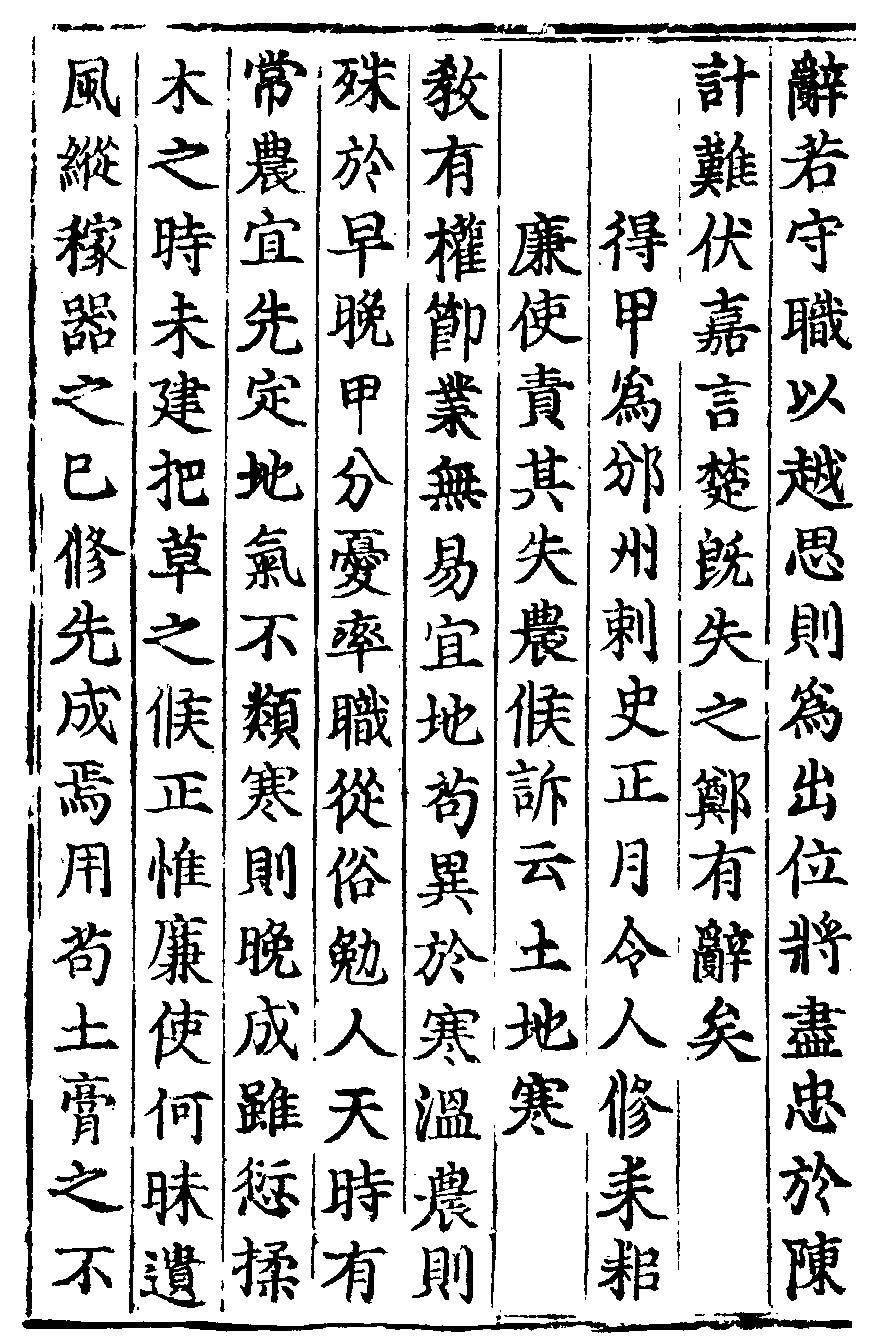 辭若守職以越思則為出位將盡忠於陳
計難伏嘉言楚旣失之鄭有辭矣
得甲為邠州刺史正月令人修耒耜
廉使責其失農候訴云土地寒
敎有權節業無易宜地苟異於寒溫農則
殊於早晚甲分憂率職從俗勉人天時有
常農宜先定地氣不類寒則晚成雖愆揉
木之時未建把草之候正惟廉使何昧遺
風縱稼器之已修先成焉用苟土膏之不